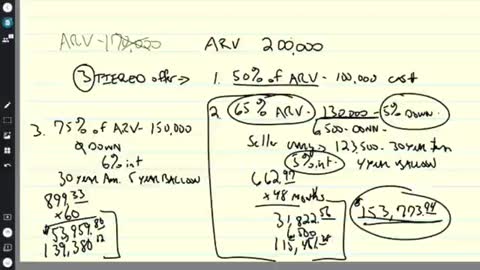 ARV - 170,000 ARV 200,000
3 TIERED offer → 1. 50% of ARV - 100,000 cash
2. 65% ARV 130,000 - 5% DOWN
6,500 - DOWN -
Seller 123,500 - 30 year Am
5% int. 4 YEAR BALLOON
662.97
x 48 MONTHS
31,822.56
6,500
$153,773.94
3. 75% of ARV - 150,000
0 DOWN
6% int
30 YEAR Am. 5 YEAR BALLOON
899.33
x 60
$53,959.80
139,380.12